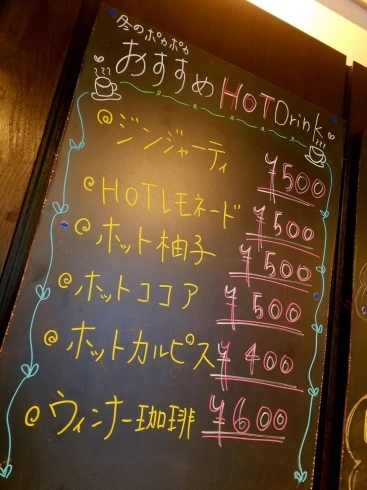 冬のポカポカ
おすすめHOTDrink
@ジンジャーティ ¥500
@HOTレモネード ¥500
@ホット柚子 ¥500
@ホットココア ¥500
@ホットカルピス ¥400
@ウィンナー珈琲 ¥600